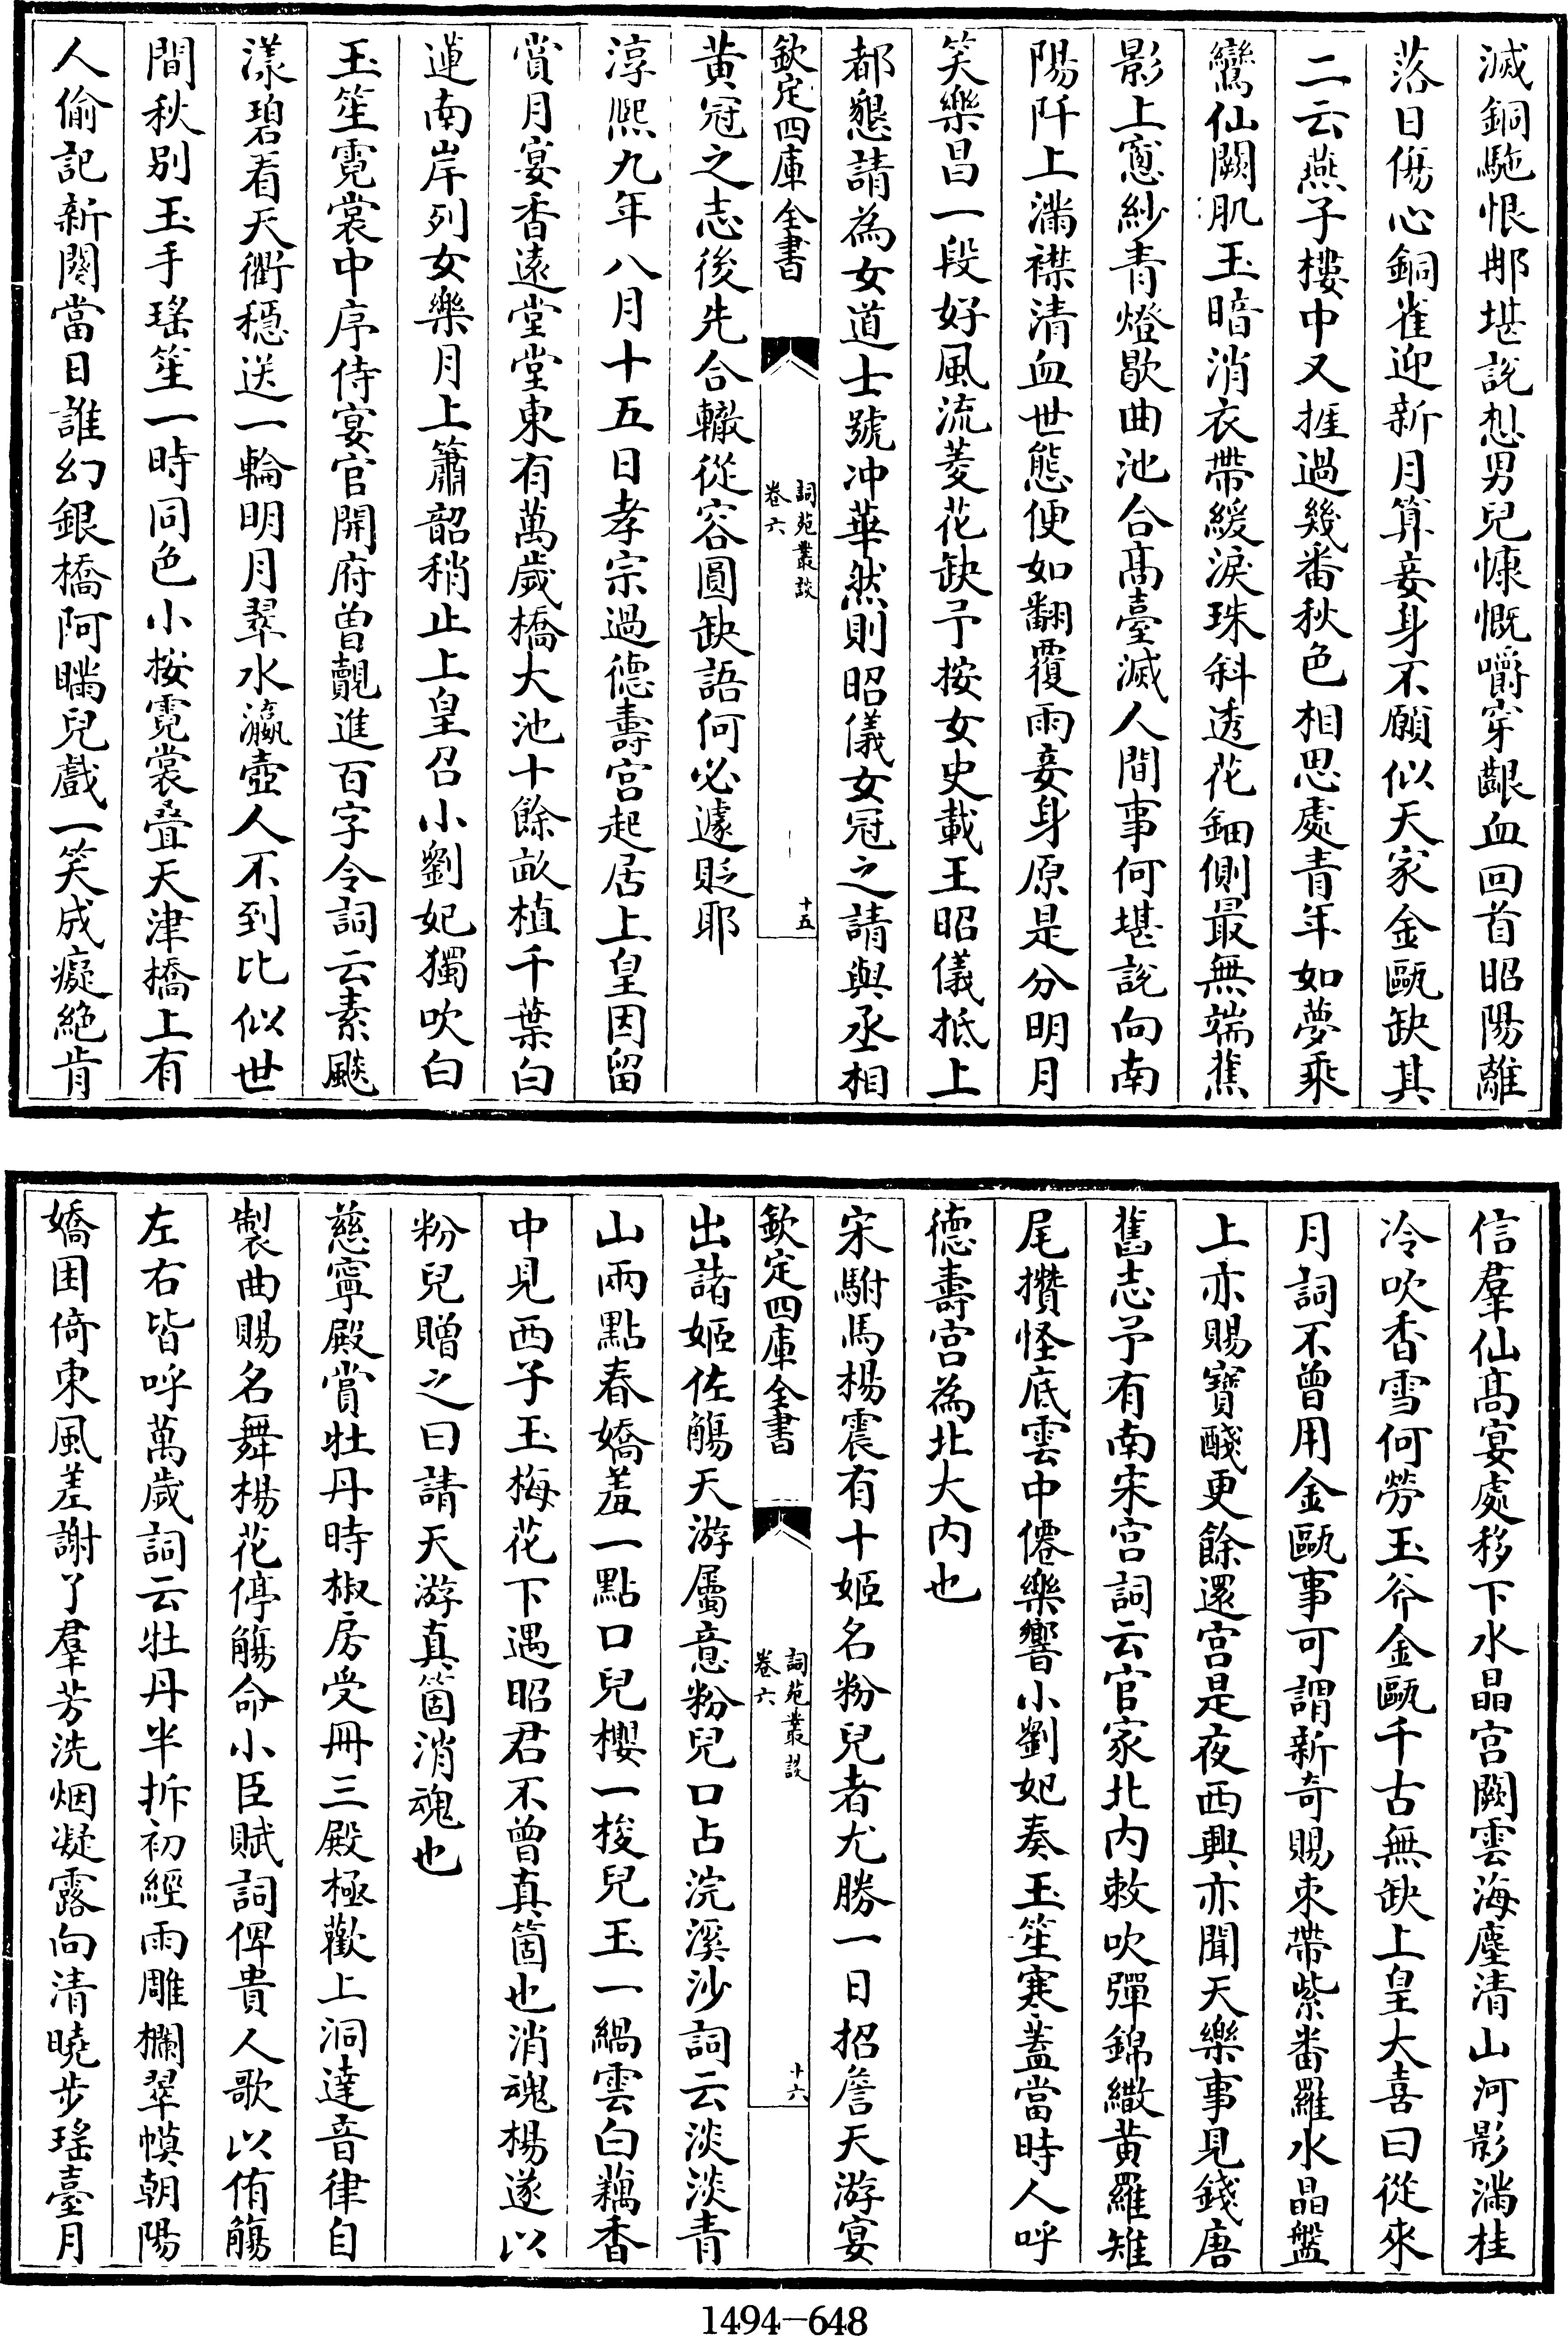 滅銅駞恨那堪說想男兒慷慨嚼穿齦血回首昭陽離
落日傷心銅雀迎新月算妾身不願似天家金甌缺其
二云燕子樓中又捱過幾番秋色相思處青年如夢乘
鸞仙闕肌玉暗消衣帶緩淚珠斜透花鈿側最無端蕉
影上窻紗青燈歇曲池合髙臺滅人間事何堪說向南
陽阡上滿襟清血世態便如翻覆雨妾身原是分明月
笑樂昌一段好風流菱花缺予按女史載王昭儀抵上
都懇請為女道士號冲華然則昭儀女冠之請與丞相
欽定四庫全書
詞苑叢談
卷六
十五
黄冠之志後先合轍從容圓缺語何必遽貶耶
淳熈九年八月十五日孝宗過德壽宫起居上皇因留
賞月宴香遠堂堂東有萬歲橋大池十餘畝植千葉白
蓮南岸列女樂月上簫韶稍止上皇召小劉妃獨吹白
玉笙霓裳中序侍宴官開府曽覿進百字令詞云素飈
漾碧看天衢穏送一輪明月翠水瀛壺人不到比似世
間秋别玉手瑤笙一時同色小按霓裳疊天津橋上有
人偷記新闋當日誰幻銀橋阿瞞兒戲一笑成癡絶肯
信羣仙髙宴處移下水晶宫闕雲海塵清山河影滿桂
冷吹香雪何勞玉斧金甌千古無缺上皇大喜曰從來
月詞不曾用金甌事可謂新奇賜束帶紫番羅水晶盤
上亦賜寶醆更餘還宫是夜西興亦聞天樂事見錢唐
舊志予有南宋宫詞云官家北内敕吹彈錦繖黄羅雉
尾攢怪底雲中僊樂響小劉妃奏玉笙寒蓋當時人呼
德壽宫為北大内也
宋駙馬楊震有十姬名粉兒者尤勝一日招詹天游宴
欽定四庫全書
詞苑叢談
卷六
十六
出諸姬佐觴天游屬意粉兒口占浣溪沙詞云淡淡青
山兩點春嬌羞一點口兒櫻一梭兒玉一緺雲白藕香
中見西子玉梅花下遇昭君不曾真箇也消魂楊遂以
粉兒贈之曰請天游真箇消魂也
慈寧殿賞牡丹時椒房受冊三殿極歡上洞達音律自
製曲賜名舞楊花停觴命小臣賦詞俾貴人歌以侑觴
左右皆呼萬歲詞云牡丹半拆初經雨雕欄翠幙朝陽
嬌困倚東風羞謝了羣芳洗烟凝露向清曉步瑤臺月
1494—648